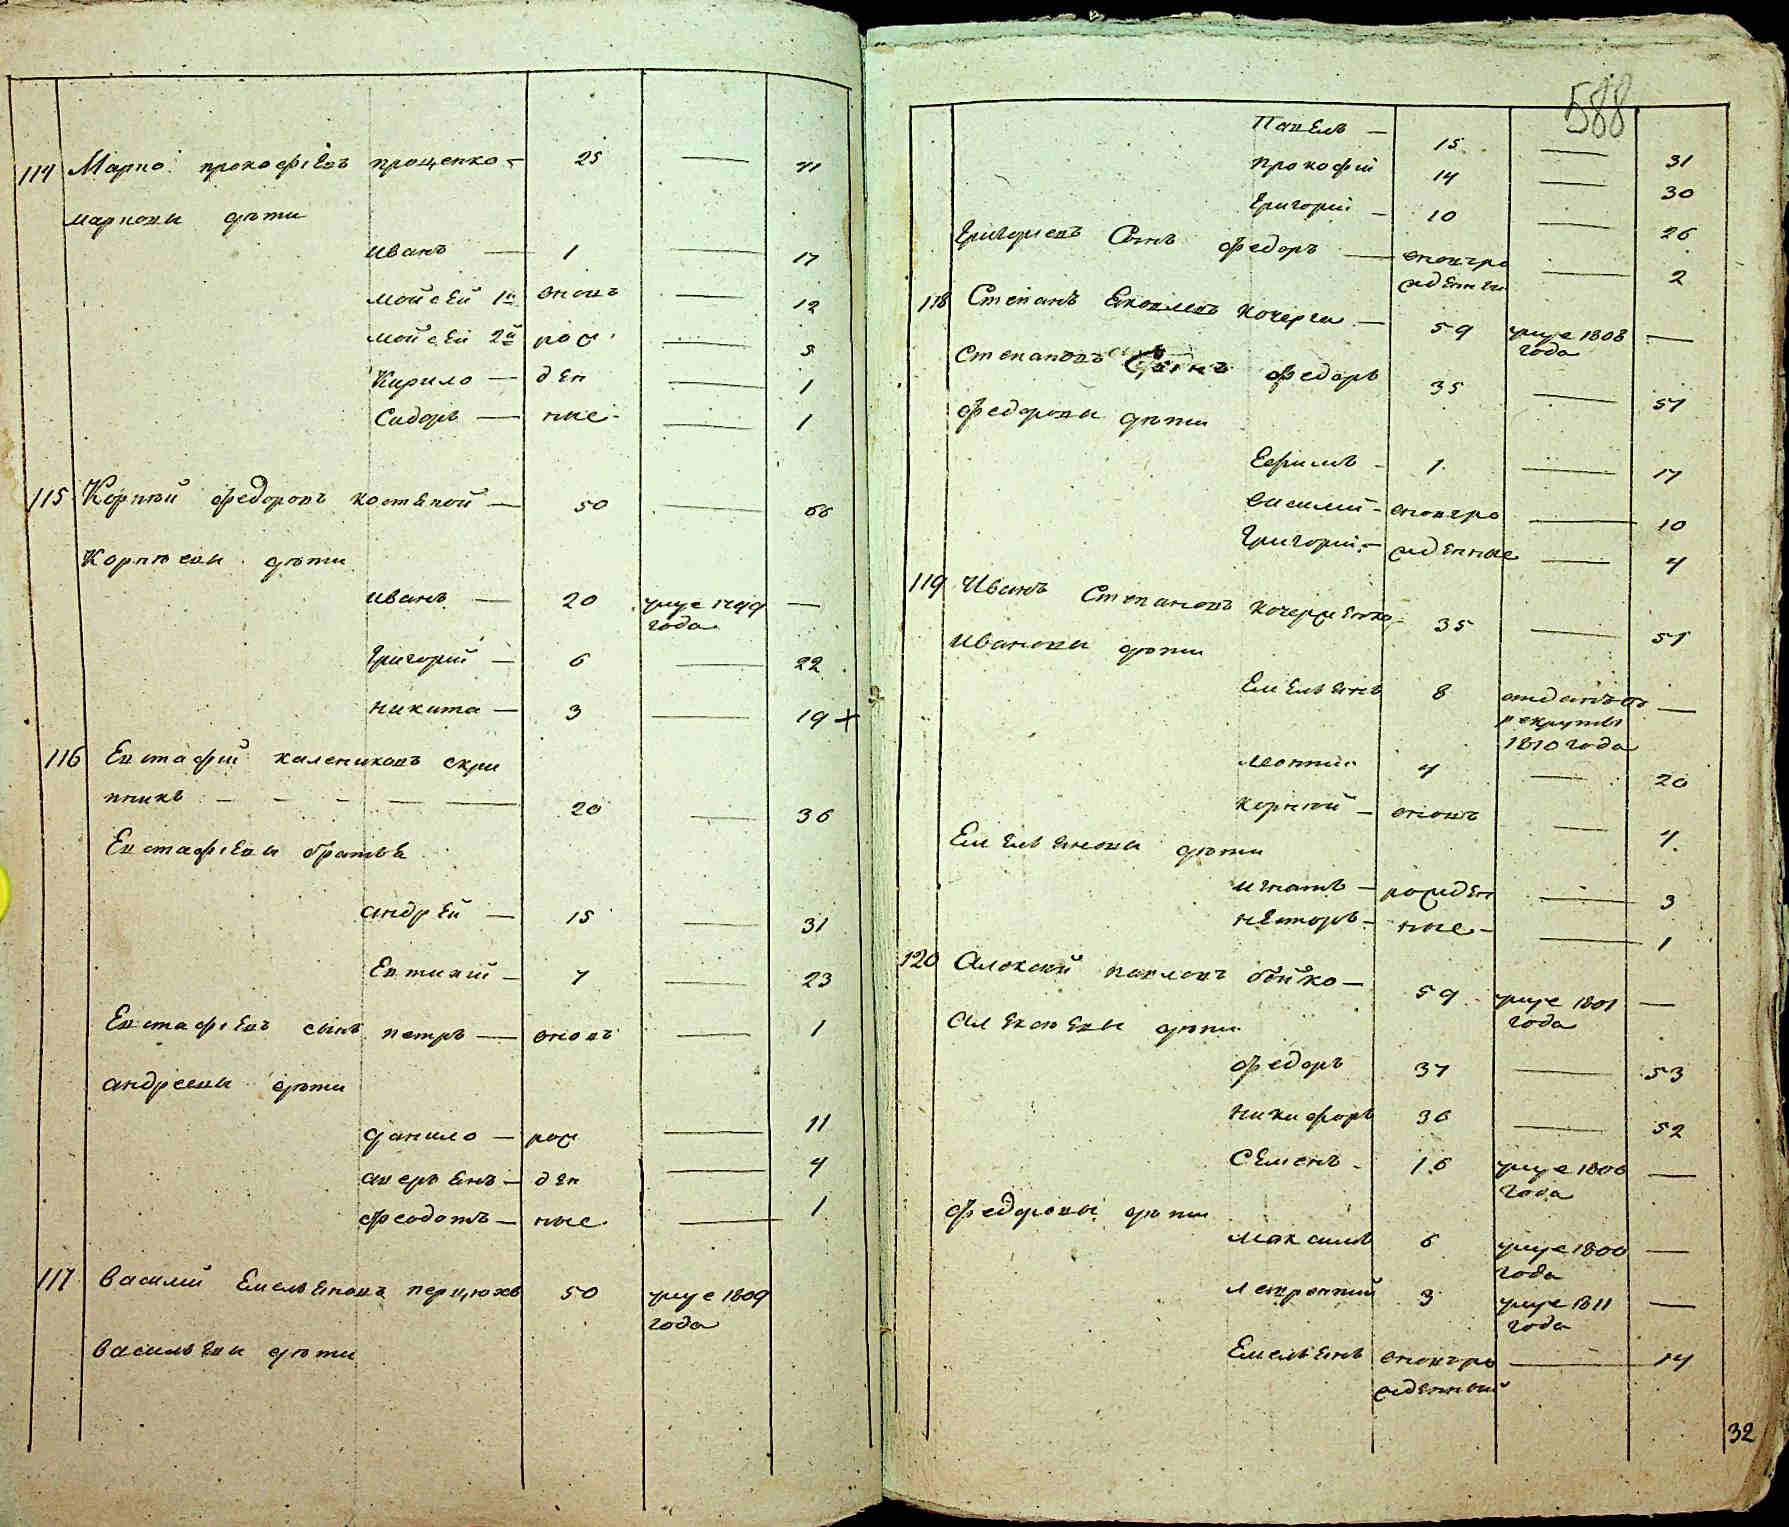 114 Марко прокофіевъ проценко — 25 — 41
марковы дѣти
иванъ — 1 — 17
мойсей 1й вновь — 12
мойсей 2й рож — 5
Кирило — ден — 1
Сидоръ — ные — 1
115 Корнѣй федоровъ костѣвой — 50 — 66
Корнѣевы дѣти
иванъ — 20 умре 1799 —
года
Григорий — 6 — 22
никита — 3 — 19 +
116 Евстафий калениковъ скри
пникъ — 20 — 36
Евстафіевы братья
андрей — 15 — 31
Евтихий — 7 — 23
Евстафіевъ сынъ петръ — вновь — 1
андреевы дѣти
данило — рож — 11
аверьянъ — ден — 4
феодотъ — ные — 1
117 василий Емельяновъ перцюхъ 50 умре 1809
года
васильевы дѣти
588
Павелъ — 15 — 31
прокофий 14 — 30
Григорий — 10 — 26
Григориевъ Сынъ федоръ — вновъро — 2
жденны
118 Степанъ Яковлевъ кочерга — 59 умре 1808 —
года
Степановъ Сынъ федоръ 35 — 51
федоровы дѣти
Ефимъ — 1 — 17
василий — вновъро — 10
Григорий — жденные — 4
119 Иванъ Степановъ кочерженко 35 — 51
ивановы дѣти
Емельянъ 8 отданъ въ —
рекруты
1810 года
леонтий 4 — 20
корнѣй — вновь — 7
Емельяновы дѣти
игнатъ — рожден — 3
несторъ — ные — 1
120 Алексѣй павловъ бойко — 59 умре 1801 —
года
Алексѣевы дѣти
федоръ 37 — 53
никифоръ 36 — 52
Семенъ — 16 умре 1806 —
года
федоровы дѣти
максимъ 6 умре 1800 —
года
3 умре 1811 —
года
Емельянъ вновъро — 14
жденный
32